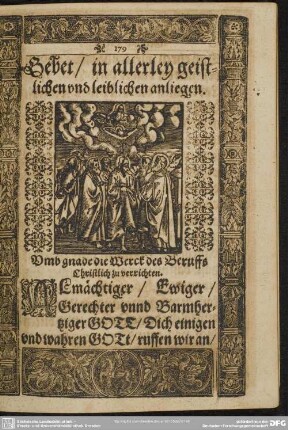 179
Gebet / in allerley geist-
lichen vnd leiblichen anliegen.
Vmb gnade die Werck des Beruffs
Christlich zu verrichten.
ALmächtiger / Ewiger /
Gerechter vnnd Barmher-
tziger GOTT / Dich einigen
vnd wahren GOTt / ruffen wir an /